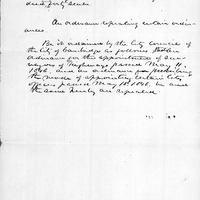 An ordinance repealing certain ordin-
ances.
Be it ordained by the City Council of
the City of Cambridge as follows: That an
ordinance for the appointment of Sur-
veyors of Highways passed May 11.
1846, and an ordinance prescribing
the mode of appointing certain City
officers passed May 18. 1846, be and
the same hereby are repealed.